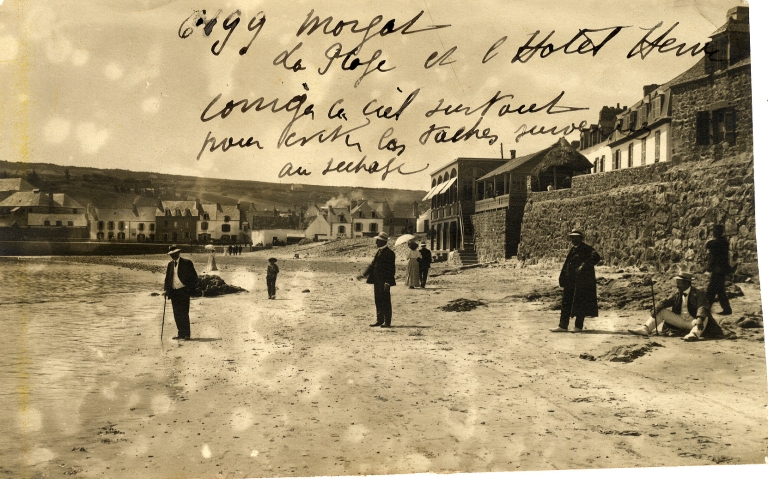 6199 Morgat
La Plage et l'Hotel Herv
corriger le ciel surtout
pour éviter les taches surve
au sechage